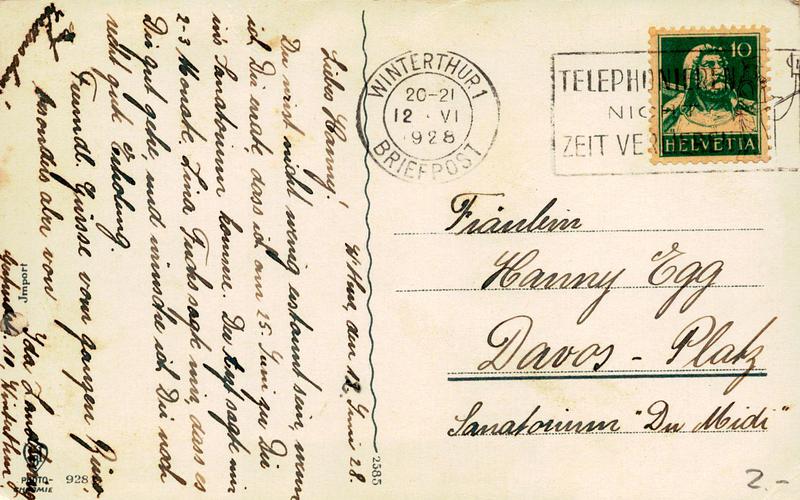 Liebes Hanny!
W'thur, den 12. Juni 28.
Du wirst nicht wenig erstaunt sein, wenn
ich Dir sage, dass ich am 25. Juni zu Dir
ins Sanatorium komme. Der sagt mir
2-3 Monate. Lina Fuchs sagte mir, dass es
Dir gut gehe, und wünsche ich Dir noch
recht gute Erholung.
Freundl. Grüsse vom ganzen
besonders aber von
Ida
10, Winterthur
WINTERTHUR 1
20-21
12 · VI
1928
BRIEFPOST
TELEPHONIEREN
NICHT
ZEIT VER
10
HELVETIA
Fräulein
Hanny Egg
Davos - Platz
Sanatorium "Du Midi"
Import
PHOTO-
CHROMIE
928
2585
2.-